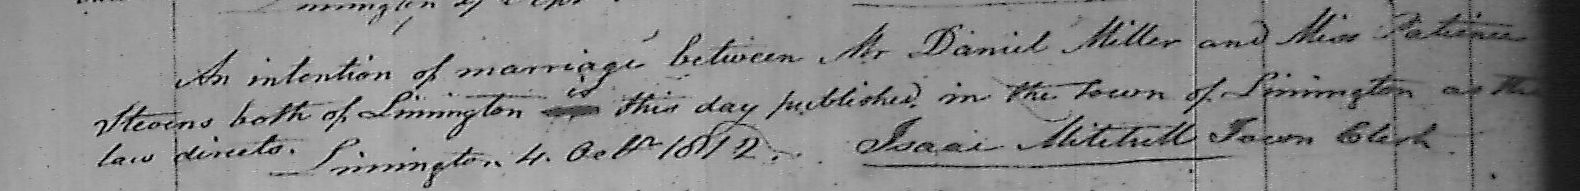 An intention of marriage between Mr Daniel Miller and Miss Patience
Stevens both of Limington is this day published in the Town of Limington as the
law directs. Limington 4. Octr 1812. Isaac Mitchell Town Clerk